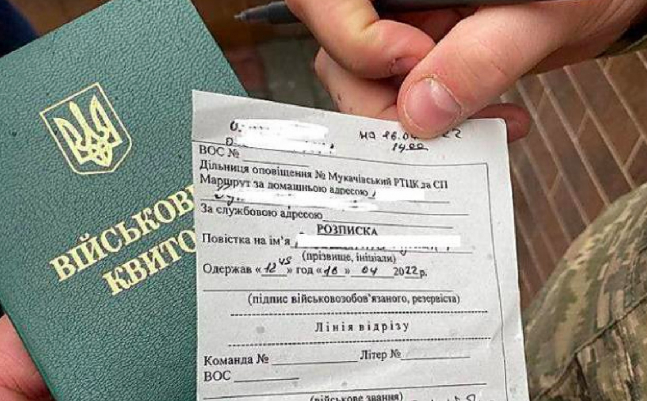 ВІЙСЬКОВ
КВИТО
на 16.04 22
14.00
ВОС №
Дільниця оповіщення № Мукачівський РТЦК та СП
Маршрут за домашньою адресою
За службовою адресою
РОЗПИСКА
Повістка на ім'я
(прізвище, ініціали)
Одержав « 12 45 » год « 16 » 04 2022 р.
(підпис військовозобов'язаного, резервіста)
Лінія відрізу
Команда № Літер №
ВОС
(військове звання)